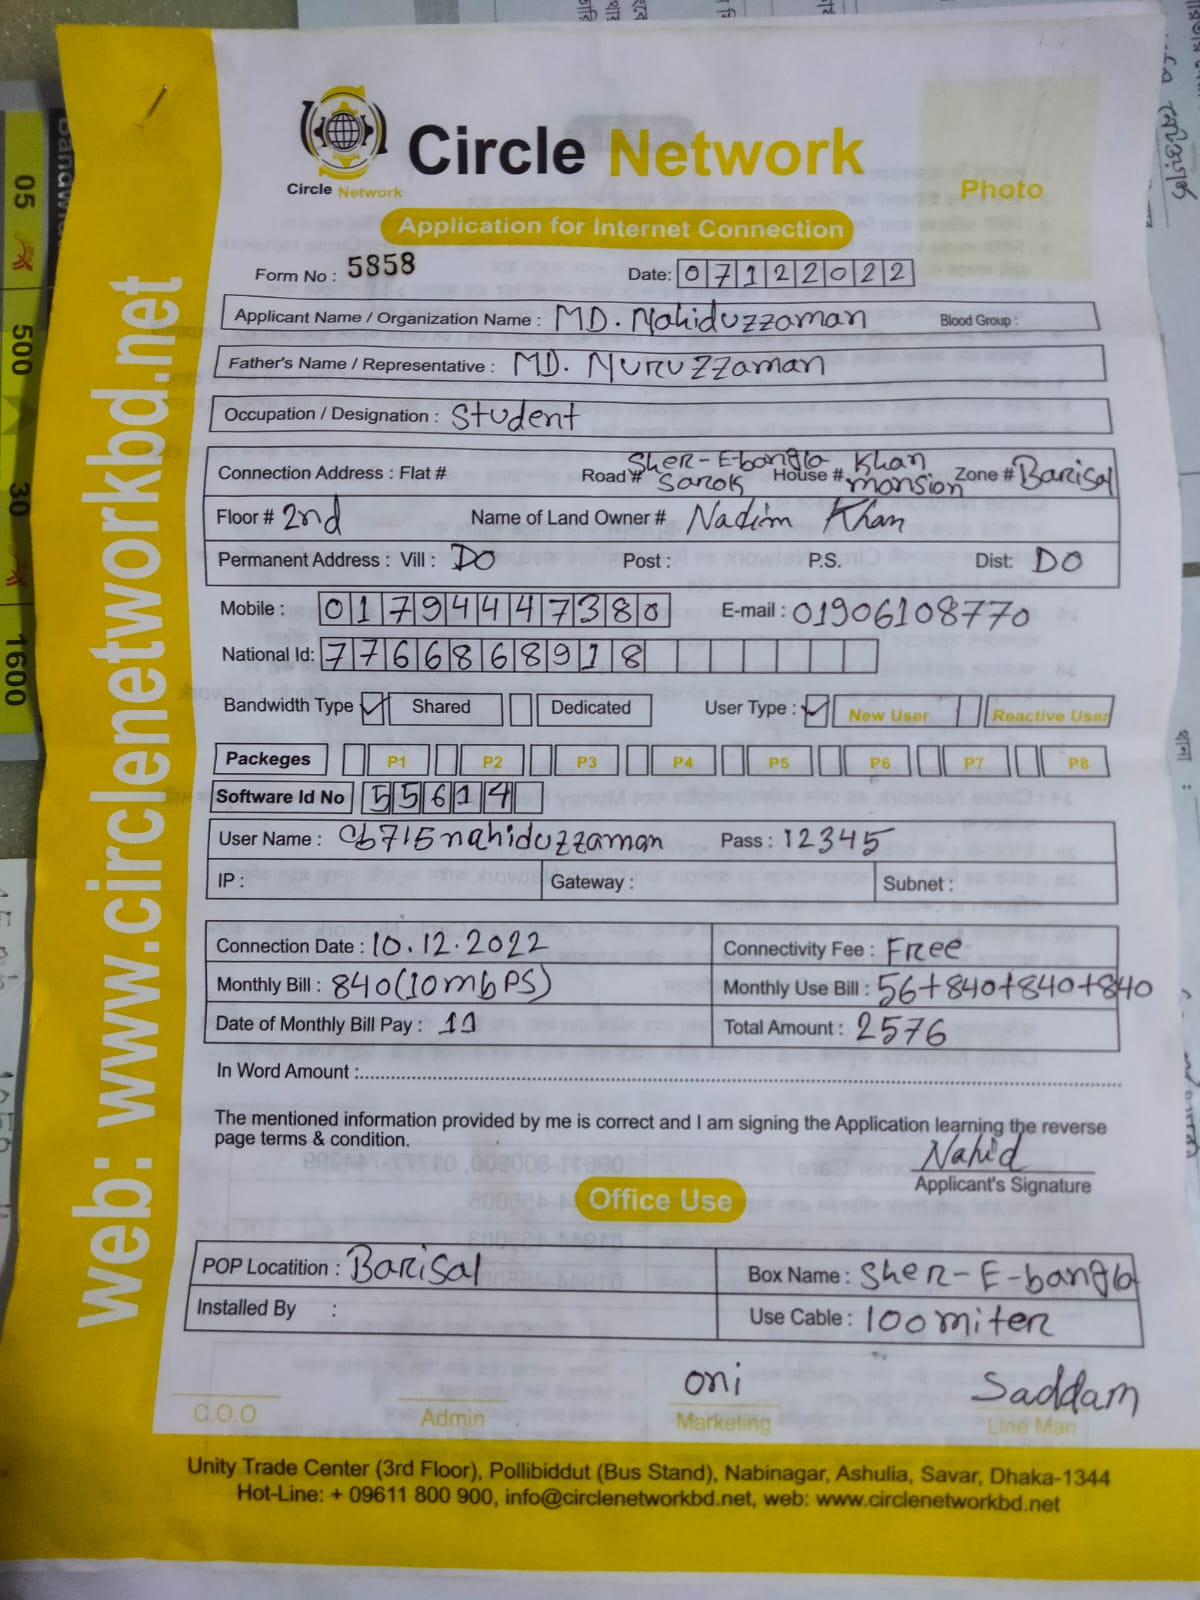 Circle Network
Circle Network
Photo
Application for Internet Connection
Form No : 5858
Date: 07122022
Applicant Name / Organization Name : MD. Nahiduzzaman Blood Group :
Father's Name / Representative : MD. Nuruzzaman
Occupation / Designation : Student
Connection Address : Flat # Road # Sher-E-bangla Sarok House # Khan mansion Zone # Barisal
Floor # 2nd Name of Land Owner # Nadim Khan
Permanent Address : Vill : DO Post : P.S. Dist: DO
Mobile : 01794447380 E-mail : 01906108770
National Id: 7766868918
Bandwidth Type ✓ Shared Dedicated User Type : ✓ New User Reactive User
Packeges P1 P2 P3 P4 P5 P6 P7 P8
Software Id No 55614
User Name : cb715nahiduzzaman Pass : 12345
IP : Gateway : Subnet :
Connection Date : 10.12.2022 Connectivity Fee : Free
Monthly Bill : 840(10mbPS) Monthly Use Bill : 56+840+840+840
Date of Monthly Bill Pay : 11 Total Amount : 2576
In Word Amount :
The mentioned information provided by me is correct and I am signing the Application learning the reverse
page terms & condition.
Nahid
Applicant's Signature
Office Use
POP Locatition : Barisal Box Name : Sher-E-bangla
Installed By : Use Cable : 100miter
oni Saddam
C.O.O Admin Marketing Line Man
Unity Trade Center (3rd Floor), Pollibiddut (Bus Stand), Nabinagar, Ashulia, Savar, Dhaka-1344
Hot-Line: + 09611 800 900, info@circlenetworkbd.net, web: www.circlenetworkbd.net
web: www.circlenetworkbd.net
05
500
30
1600